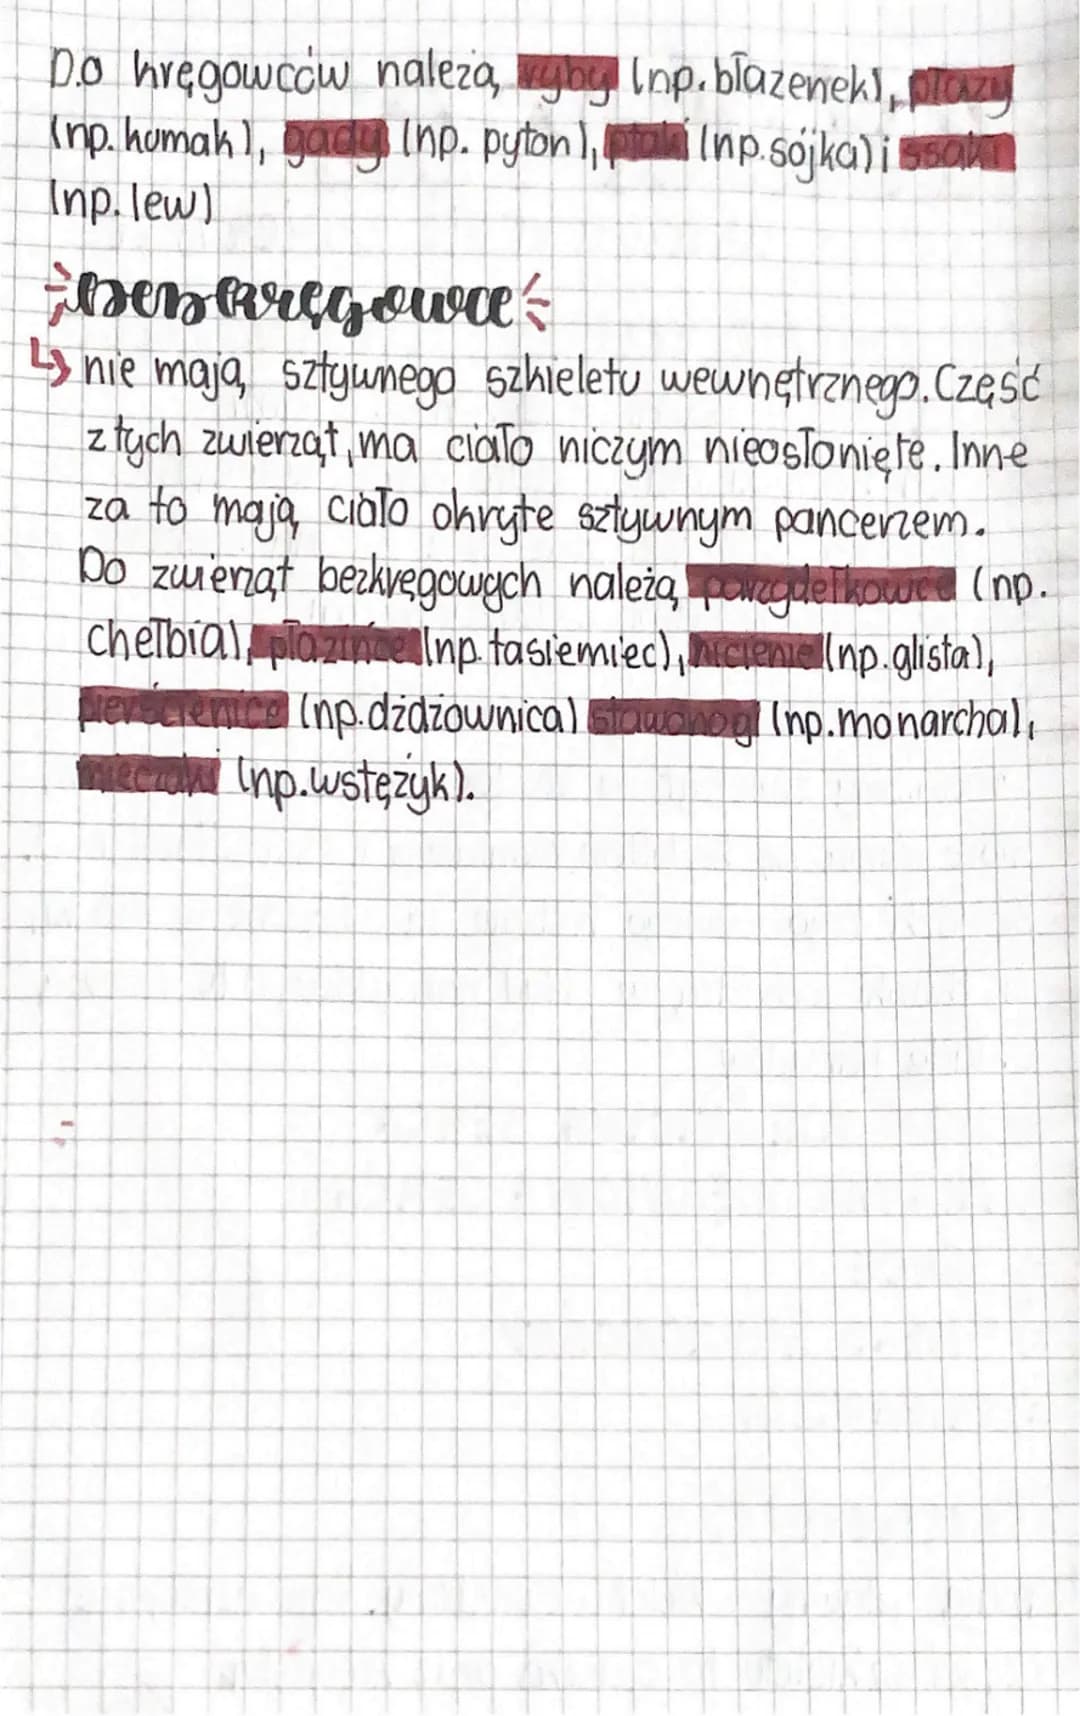 Do kręgowców należą ryby (np. błazenek), płazy
(np. kumak), gady (np. pyton), ptaki (np. sójka) i ssaki
(np. lew)
Bezkręgowce
↳ nie mają sztywnego szkieletu wewnętrznego. Część
z tych zwierząt, ma ciało niczym nieosłonięte. Inne
za to mają ciało okryte sztywnym pancerzem.
Do zwierząt bezkręgowych należą parzydełkowce (np.
chełbia), płazińce (np. tasiemiec), nicienie (np. glista),
pierścienice (np. dżdżownica) stawonogi (np. monarcha),
mięczaki (np. wstężyk).